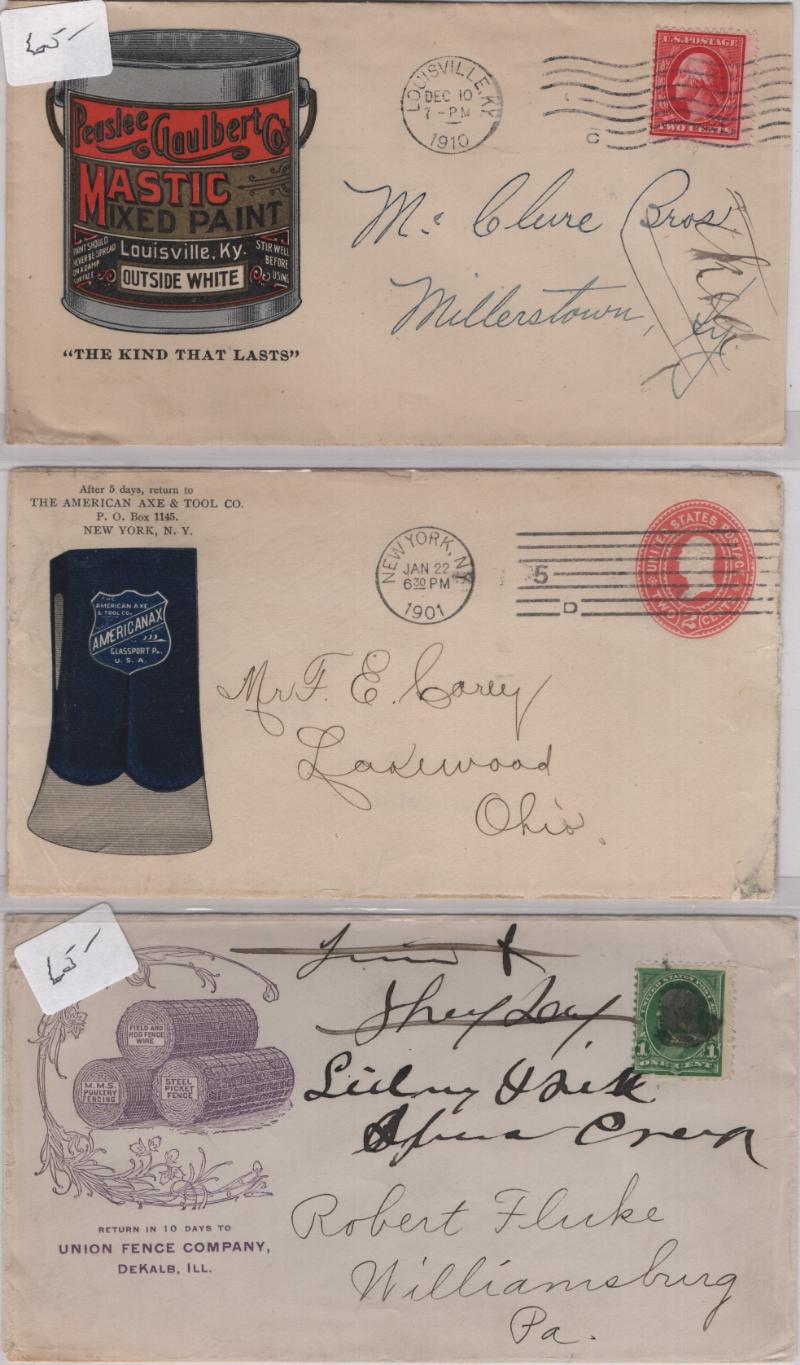 65-
Peaslee Gaulbert Co's
MASTIC
MIXED PAINT
PAINT SHOULD
NEVER BE SPREAD
ON A DAMP
SURFACE
Louisville, Ky.
OUTSIDE WHITE
STIR WELL
BEFORE
USING
"THE KIND THAT LASTS"
LOUISVILLE, KY.
DEC 10
7-PM
1910
C
U.S. POSTAGE
TWO CENTS
Mc Clure Bros.
Millerstown, Ky.
After 5 days, return to
THE AMERICAN AXE & TOOL CO.
P. O. Box 1145.
NEW YORK, N. Y.
THE
AMERICAN AXE
& TOOL CO.
AMERICANAX
GLASSPORT Pa.
U. S. A.
NEW YORK, N.Y.
JAN 22
6 30 PM
1901
5
D
UNITED STATES POSTAGE
TWO 2 CENTS
Mr F. E. Corey
Lakewood
Ohio.
65-
FIELD AND
HOG FENCE
WIRE
M.M.S.
POULTRY
FENCING
STEEL
PICKET
FENCE
RETURN IN 10 DAYS TO
UNION FENCE COMPANY,
DEKALB, ILL.
1 1
ONE CENT
Robert Fluke
Williamsburg
Pa.